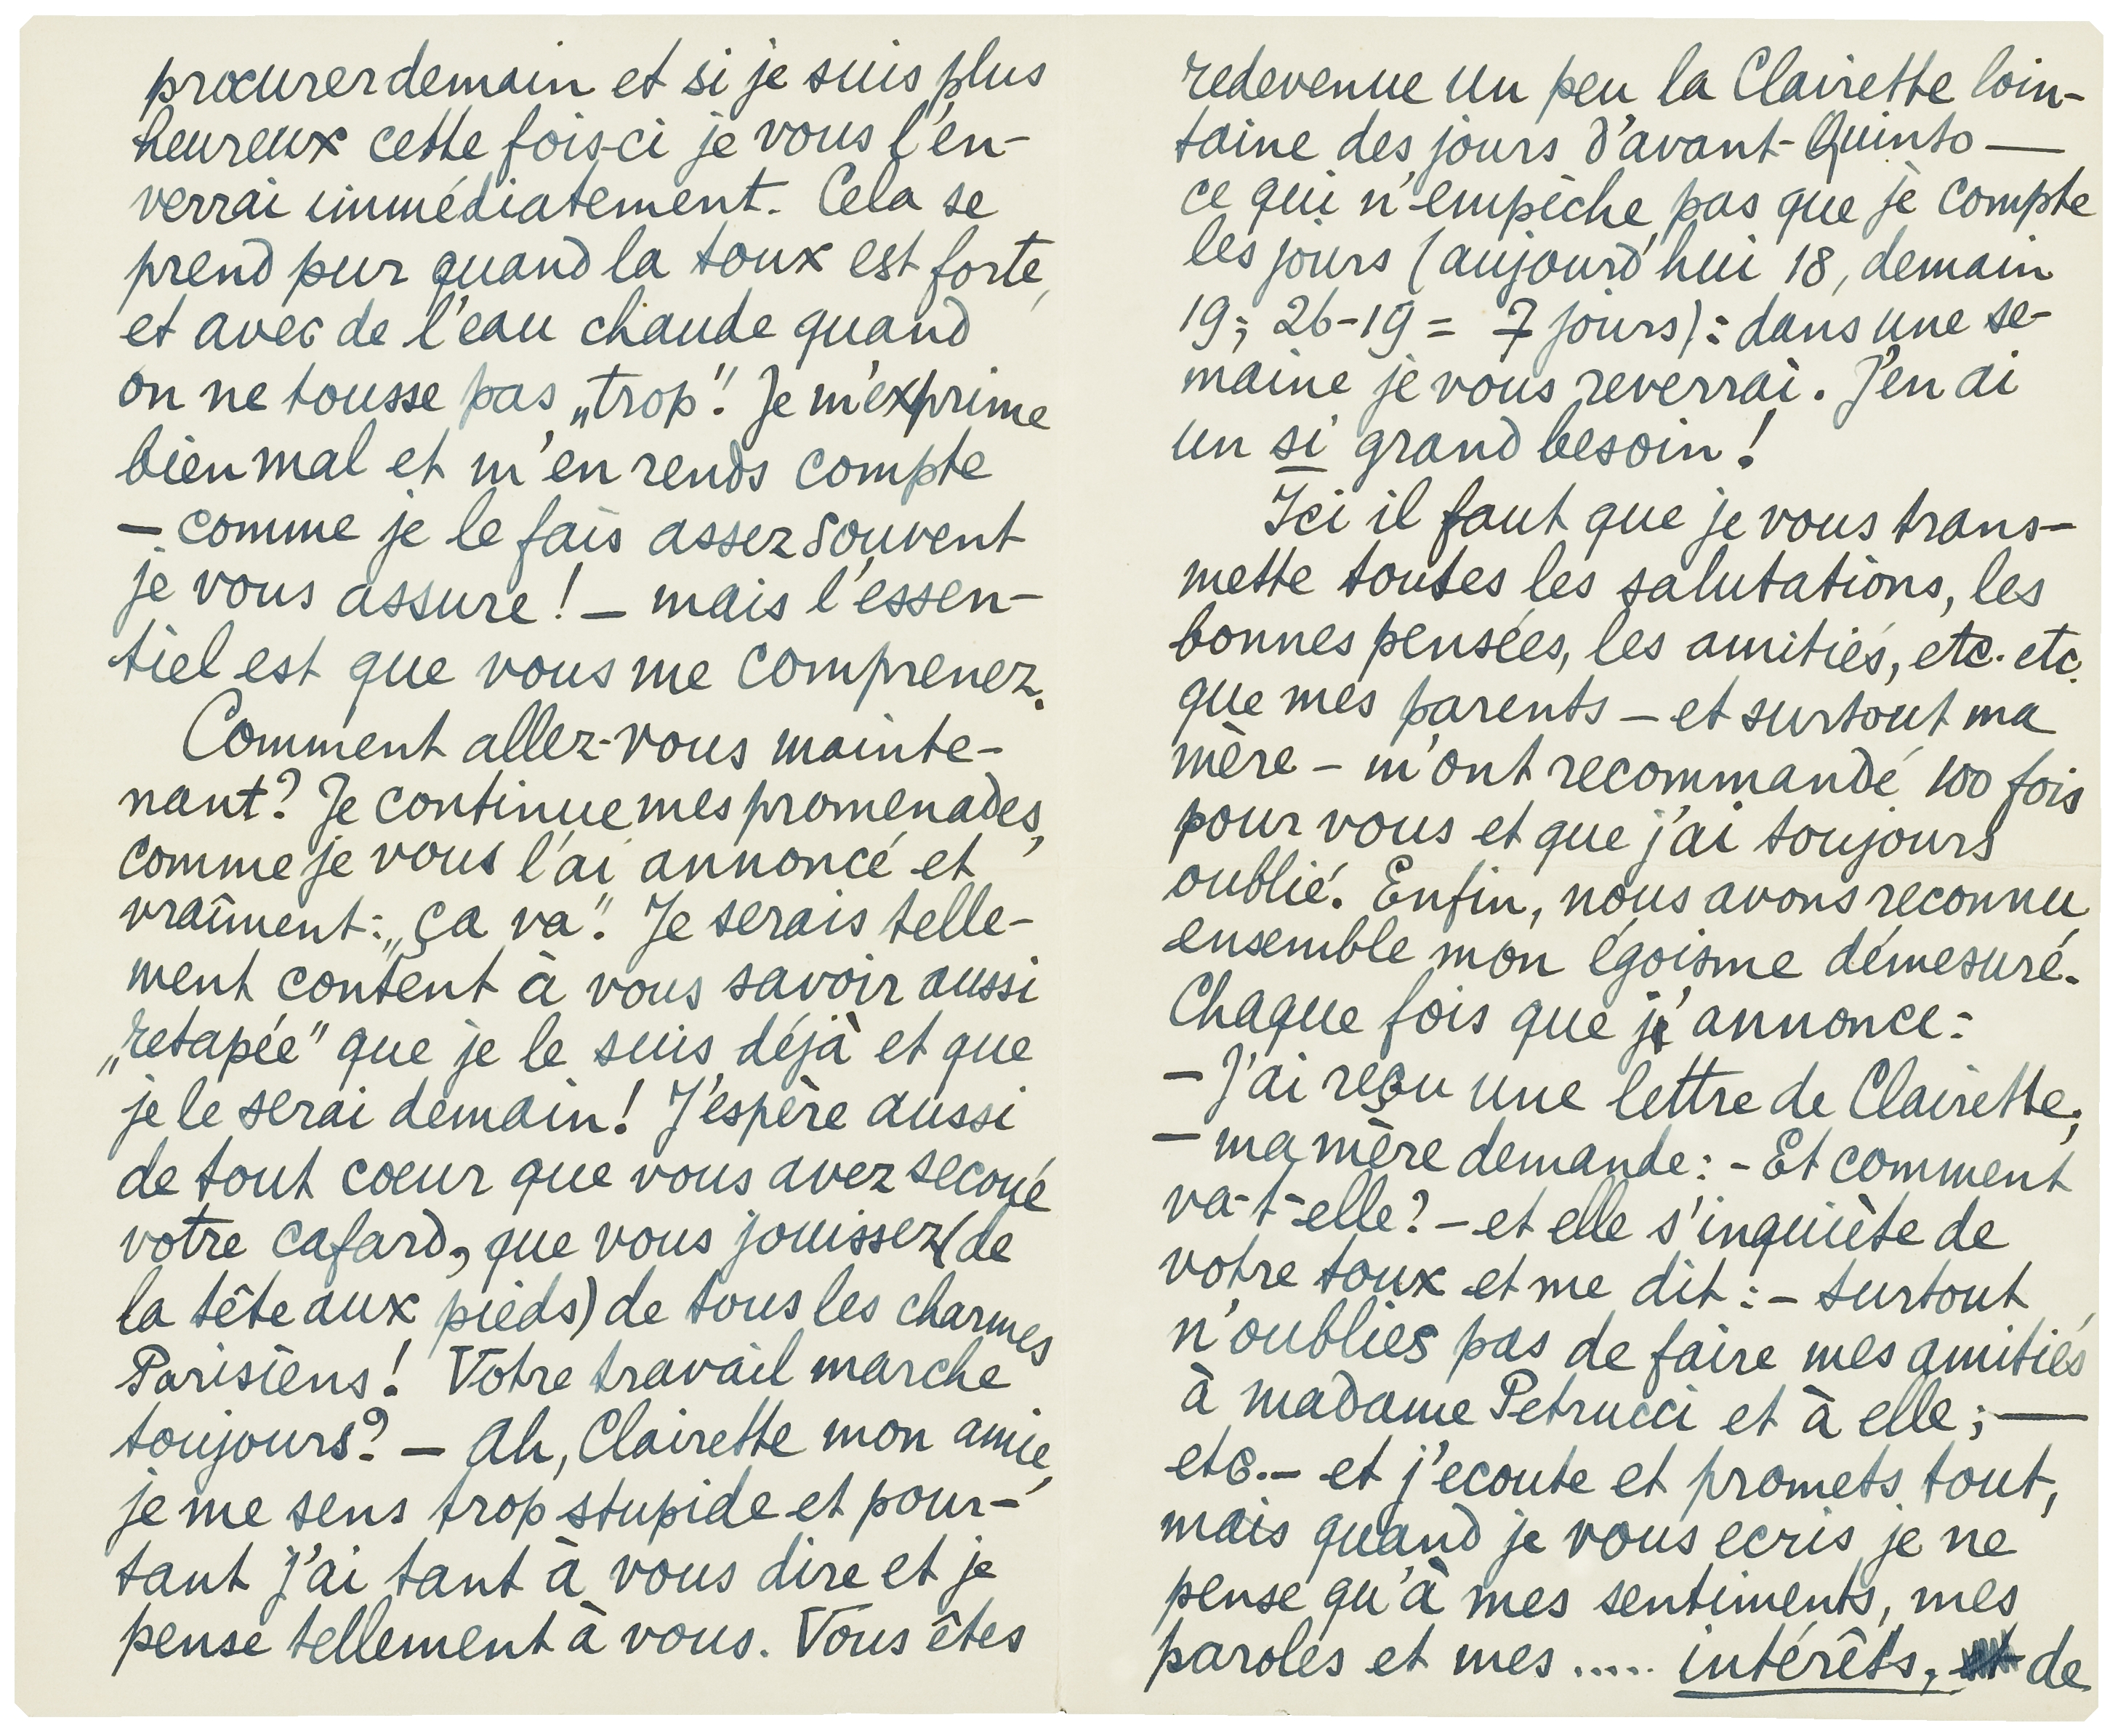 procurer demain et si je suis plus
heureux cette fois-ci je vous l'en-
verrai immédiatement. Cela se
prend pur quand la toux est forte,
et avec de l'eau chaude quand
on ne tousse pas „trop". Je m'exprime
bien mal et m'en rends compte
— comme je le fais assez souvent
je vous assure! — mais l'essen-
tiel est que vous me comprenez.
Comment allez-vous mainte-
nant? Je continue mes promenades,
comme je vous l'ai annoncé et
vraîment: „ça va". Je serais telle-
ment content à vous savoir aussi
„retapée" que je le suis déjà et que
je le serai demain! J'espère aussi
de tout coeur que vous avez secoué
votre cafard, que vous jouissez (de
la tête aux pieds) de tous les charmes
Parisiens! Votre travail marche
toujours? — Ah, Clairette mon amie,
je me sens trop stupide et pour-
tant j'ai tant à vous dire et je
pense tellement à vous. Vous êtes
redevenue un peu la Clairette loin-
taine des jours d'avant-Quinto —
ce qui n'empèche pas que je compte
les jours (aujourd'hui 18, demain
19; 26-19 = 7 jours): dans une se-
maine je vous reverrai. J'en ai
un si grand besoin!
Ici il faut que je vous trans-
mette toutes les salutations, les
bonnes pensées, les amitiés, etc. etc.
que mes parents — et surtout ma
mère — m'ont recommandé 100 fois
pour vous et que j'ai toujours
oublié. Enfin, nous avons reconnu
ensemble mon égoisme démesuré.
Chaque fois que j'annonce:
— J'ai reçu une lettre de Clairette;
— ma mère demande: - Et comment
va-t-elle? — et elle s'inquiète de
votre toux et me dit: — surtout
n'oublies pas de faire mes amitiés
à madame Petrucci et à elle; —
etc. — et j'ecoute et promets tout,
mais quand je vous ecris je ne
pense qu'à mes sentiments, mes
paroles et mes ..... intérêts, de